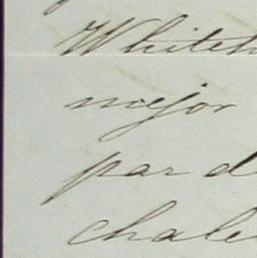 Whiteh
mejor
par d
chale